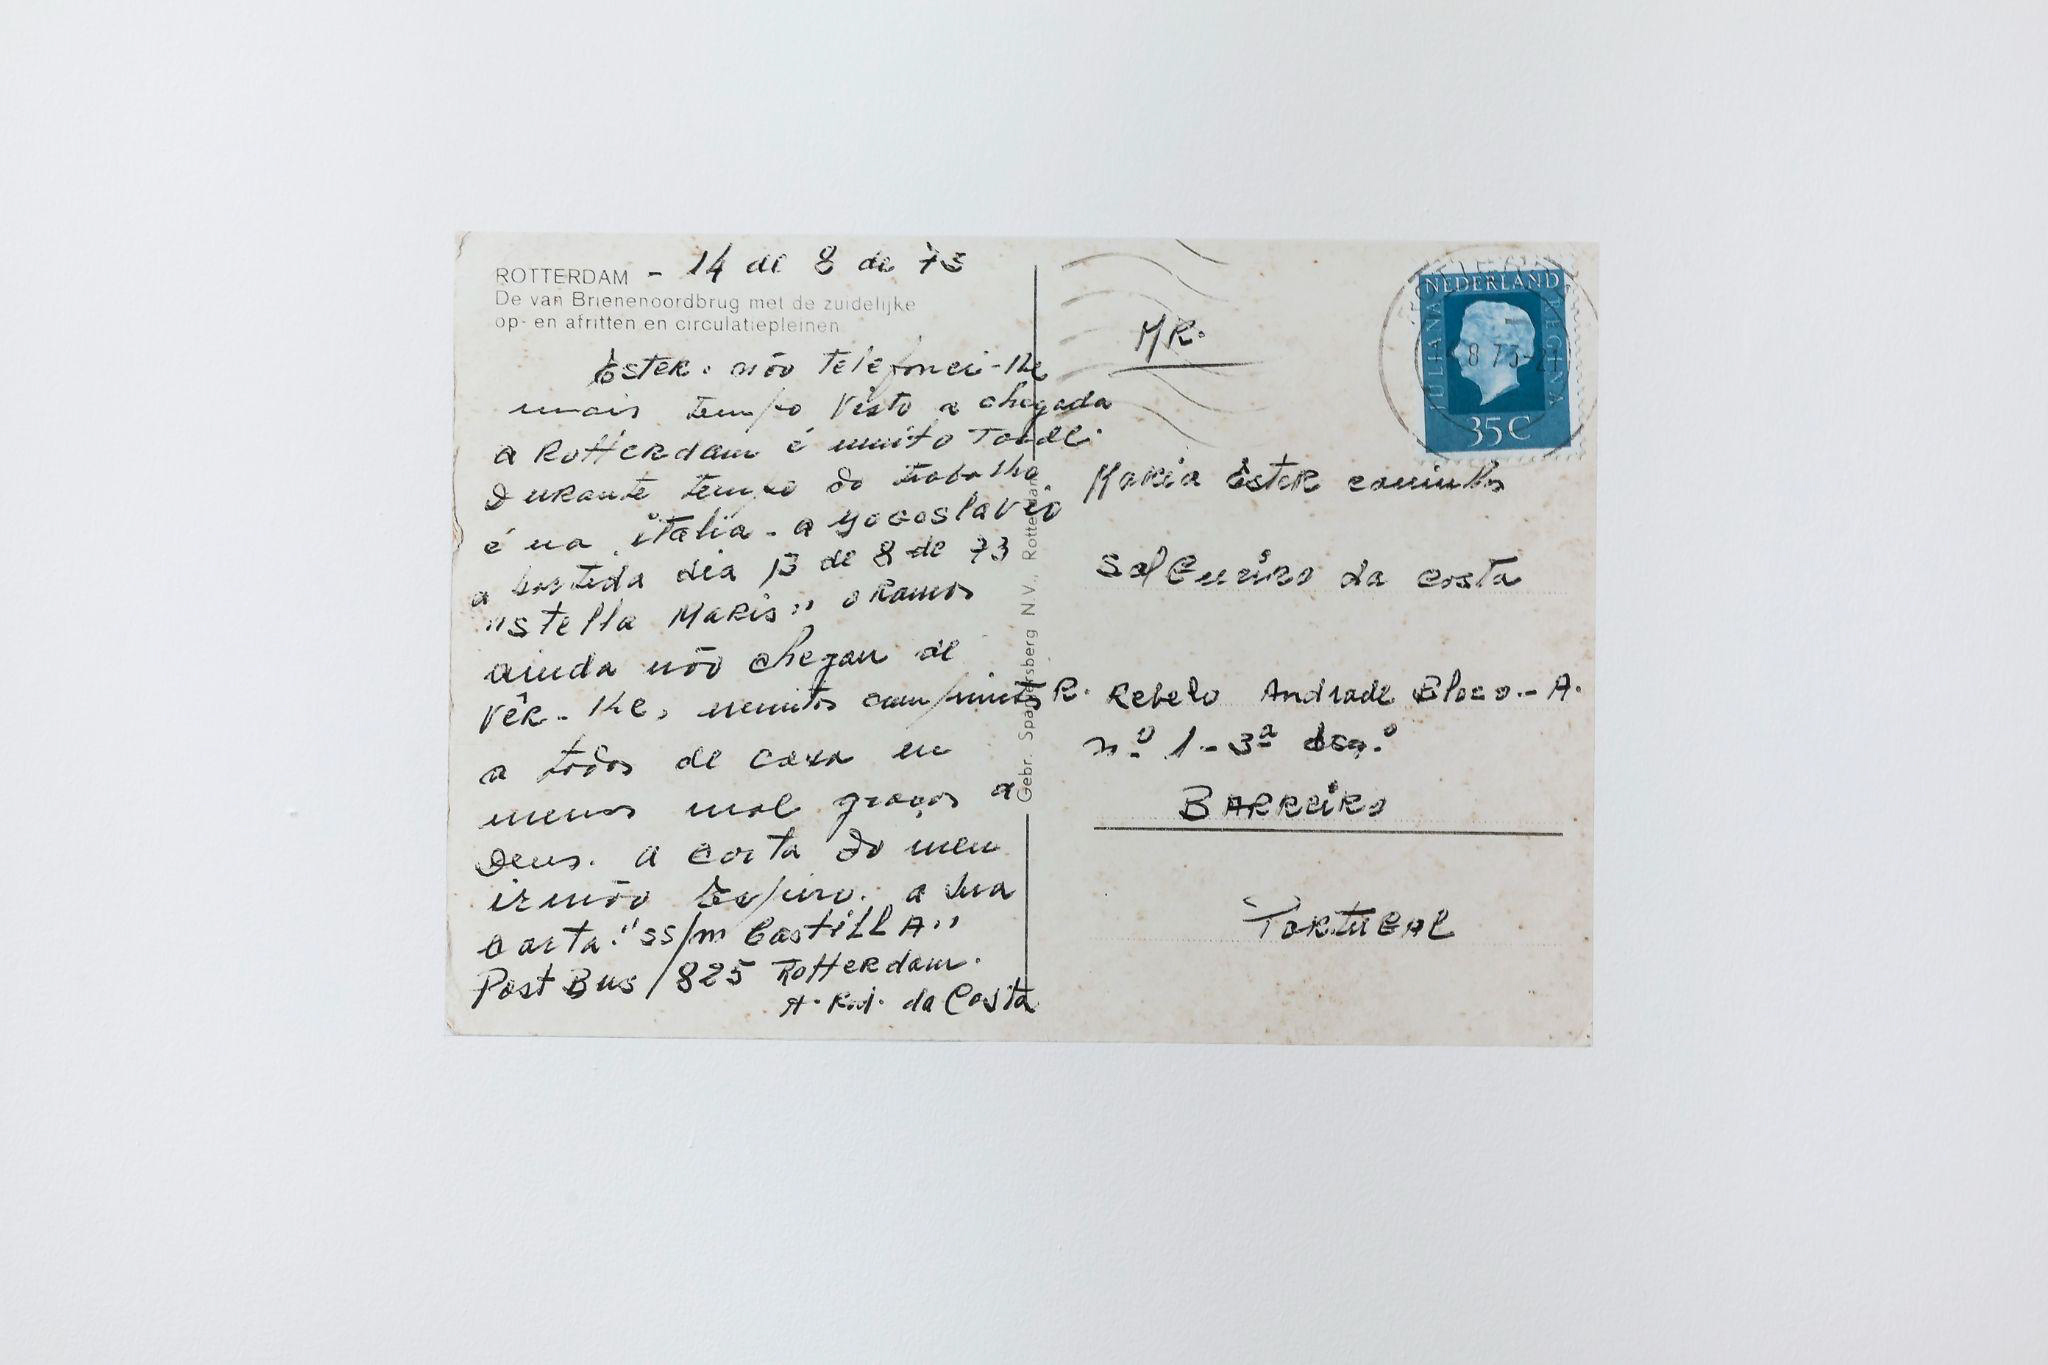 ROTTERDAM - 14 de 8 de 73
De van Brienenoordbrug met de zuidelijke
op- en afritten en circulatiepleinen
Ester. não telefonei-lhe
mais tempo visto a chegada
a Rotterdam é muito Tarde.
Durante tempo do trabalho
é na italia - a yogoslavia
a partida dia 13 de 8 de 73
"Stella Maris" o Ramos
ainda não chegou de
vêr-lhe, muitos cumprimentos
a todos de casa eu
menos mal graças a
Deus. a carta do meu
irmão a sua
carta "ss/m CastiLLA"
Post Bus / 825 Rotterdam.
A. Rod. da Costa
Gebr. Spanjersberg N.V., Rotterdam
MR.
Maria Ester
Salgueiro da Costa
R. Rebelo Andrade Bloco - A.
n.º 1 - 3ª esq.º
BARReiRo
PORTUGAL
NEDERLAND
JULIANA REGINA
8 73-21
35C